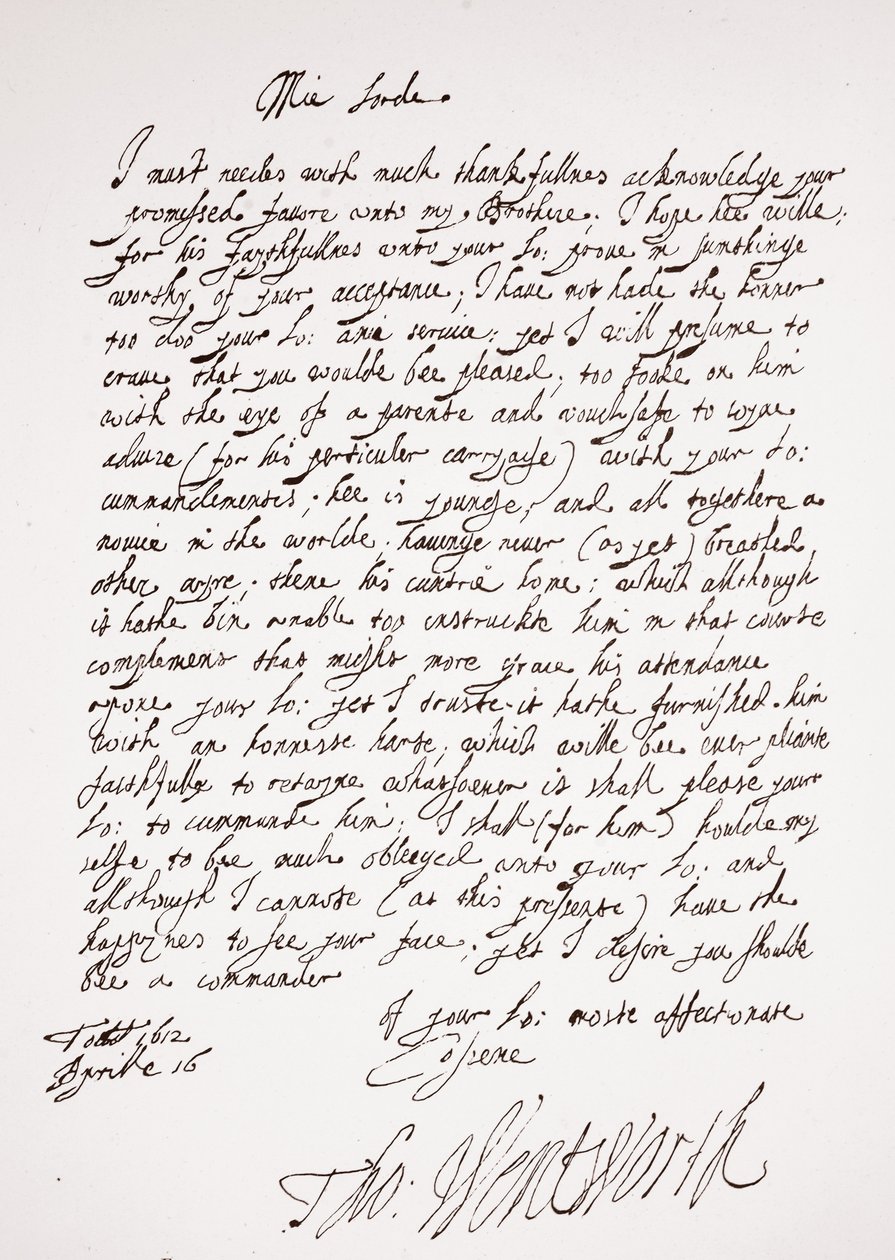 Mie Lorde.
I must needes with much thankfullnes acknowledge your
promissed favore unto my Brothere; I hope hee wille;
for his faythfullnes unto your Lo: prove in sumthinge
worthy of your acceptance; I have not hade the honner
too doo your Lo: anie service; yet I will presume to
crave that you woulde bee pleased; too looke on him
with the eye of a parente and vouchsafe to
advize (for his perticuler carryage) with your Lo:
cummandementes; hee is younge; and all togethere a
novice in the worlde; havinge never (as yet) breathed
other ayre; thene his cuntrie home; which allthough
it hathe bin unable too enstruckte him in that courte
complement that might more grace his attendance
upone your Lo: yet I truste it hathe furnished him
with an honneste harte; which wille bee ever pliante
faithfully to retayne whatsoever it shall please your
Lo: to cummande him; I shall (for him) houlde my
selfe to bee much obleeged unto your Lo: and
allthough I cannote (at this presente) have the
happynes to see your face; yet I desire you shoulde
bee a commander
of your Lo: moste affectionate
Cosene
1612
Aprille 16
Tho: Wentworth